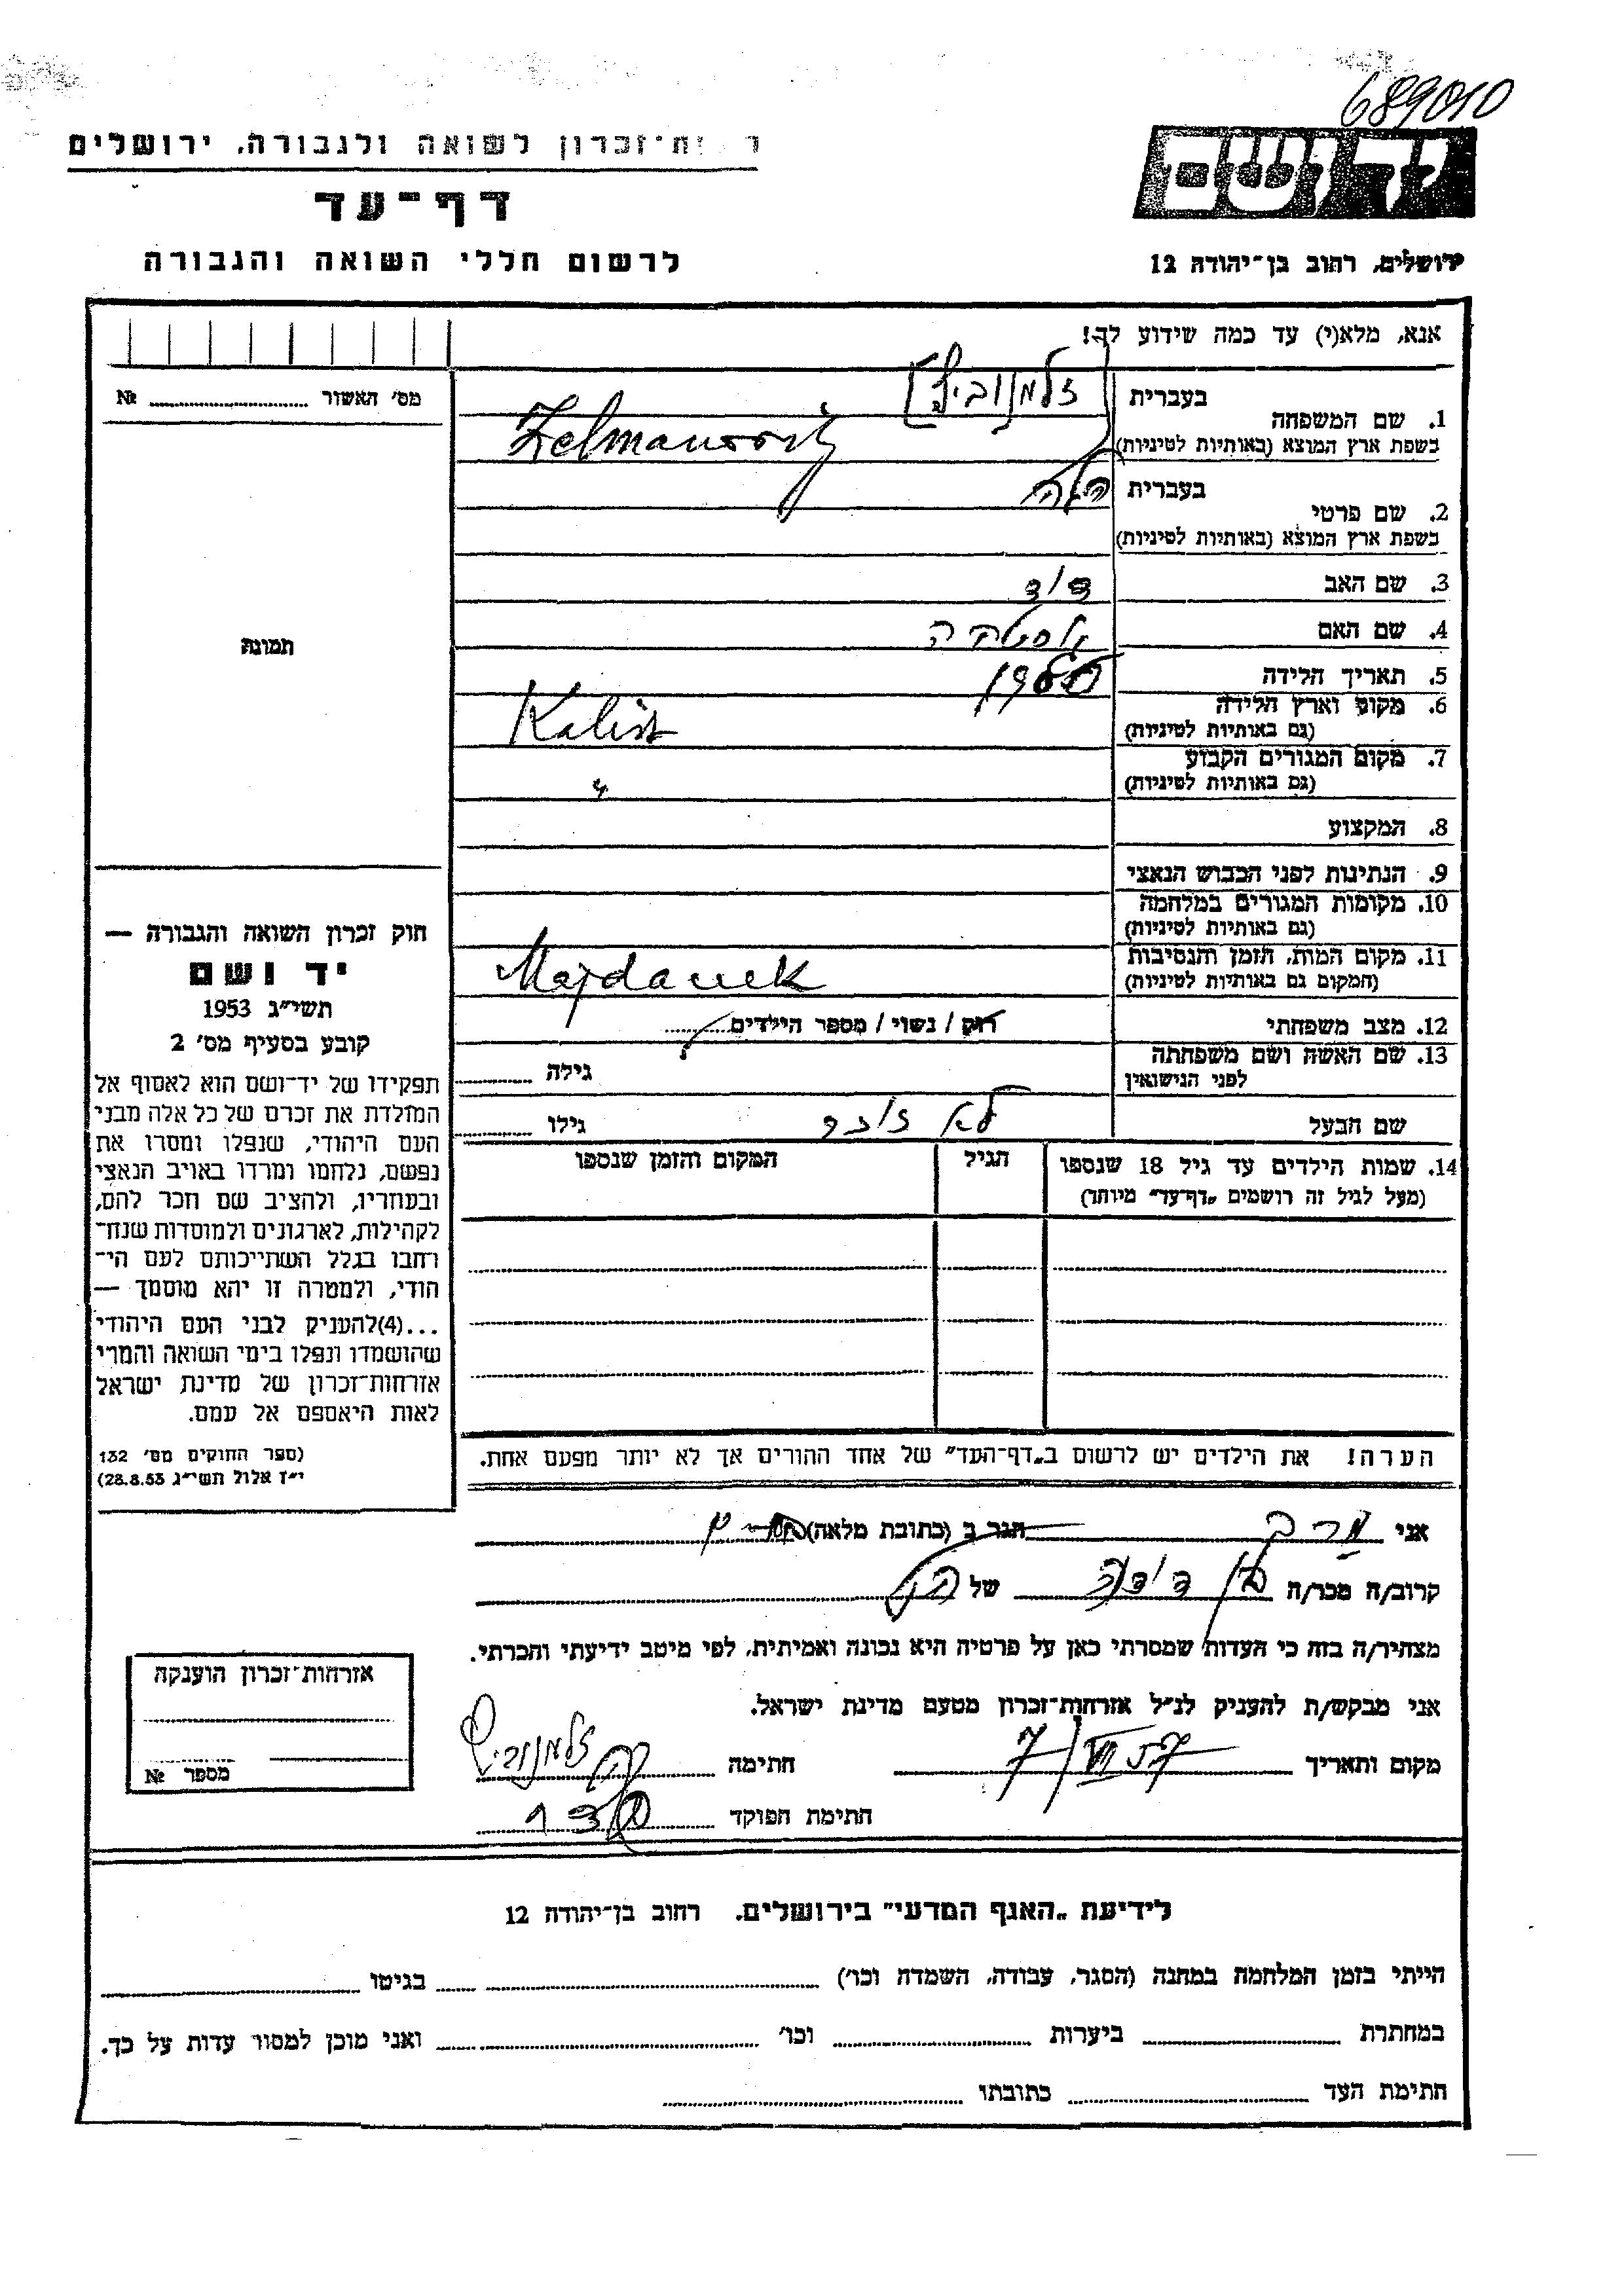 689010
רשות־זכרון לשואה ולגבורה, ירושלים
דף־עד
לרשום חללי השואה והגבורה
יד ושם
ירושלים, רחוב בן־יהודה 12
אנא, מלא(י) עד כמה שידוע לך!
מס׳ האשור № ........
1. שם המשפחה
בעברית [זלמנוביץ]
בשפת ארץ המוצא (באותיות לטיניות) Zelmanovitz
2. שם פרטי
בעברית
בשפת ארץ המוצא (באותיות לטיניות)
3. שם האב דוד
4. שם האם
5. תאריך הלידה
6. מקום וארץ הלידה
(גם באותיות לטיניות) Kalisz
7. מקום המגורים הקבוע
(גם באותיות לטיניות) "
8. המקצוע
9. הנתינות לפני הכבוש הנאצי
10. מקומות המגורים במלחמה
(גם באותיות לטיניות)
11. מקום המות, הזמן והנסיבות
(המקום גם באותיות לטיניות) Majdanek
12. מצב משפחתי רוק / נשוי / מספר הילדים........
13. שם האשה ושם משפחתה
לפני הנישואין
גילה ........
שם הבעל לא זוכר גילו ........
14. שמות הילדים עד גיל 18 שנספו הגיל המקום והזמן שנספו
(מעל לגיל זה רושמים „דף־עד" מיוחד)
הערה! את הילדים יש לרשום ב„דף־העד" של אחד ההורים אך לא יותר מפעם אחת.
תמונה
חוק זכרון השואה והגבורה —
יד ושם
תשי״ג 1953
קובע בסעיף מס׳ 2
תפקידו של יד־ושם הוא לאסוף אל
המולדת את זכרם של כל אלה מבני
העם היהודי, שנפלו ומסרו את
נפשם, נלחמו ומרדו באויב הנאצי
ובעוזריו, ולהציב שם וזכר להם,
לקהילות, לארגונים ולמוסדות שנח־
רחבו בגלל השתייכותם לעם הי־
הודי, ולמטרה זו יהא מוסמך —
...(4)להעניק לבני העם היהודי
שהושמדו ונפלו בימי השואה והמרי
אזרחות־זכרון של מדינת ישראל
לאות היאספם אל עמם.
(ספר החוקים מס׳ 132
י״ז אלול תשי״ג 28.8.53)
אני הגר ב (כתובת מלאה)
קרוב/ה מכר/ה בן דודה של
מצהיר/ה בזה כי העדות שמסרתי כאן על פרטיה היא נכונה ואמיתית, לפי מיטב ידיעתי והכרתי.
אני מבקש/ת להעניק לנ״ל אזרחות־זכרון מטעם מדינת ישראל.
מקום ותאריך חתימה זלמנוביץ
חתימת הפוקד
אזרחות־זכרון הוענקה
מספר №
לידיעת „האגף המדעי" בירושלים, רחוב בן־יהודה 12
הייתי בזמן המלחמה במחנה (הסגר, עבודה, השמדה וכו׳) ........ בגיטו ........
במחתרת ........ ביערות ........ וכו׳ ........ ואני מוכן למסור עדות על כך.
חתימת העד ........ כתובתו ........